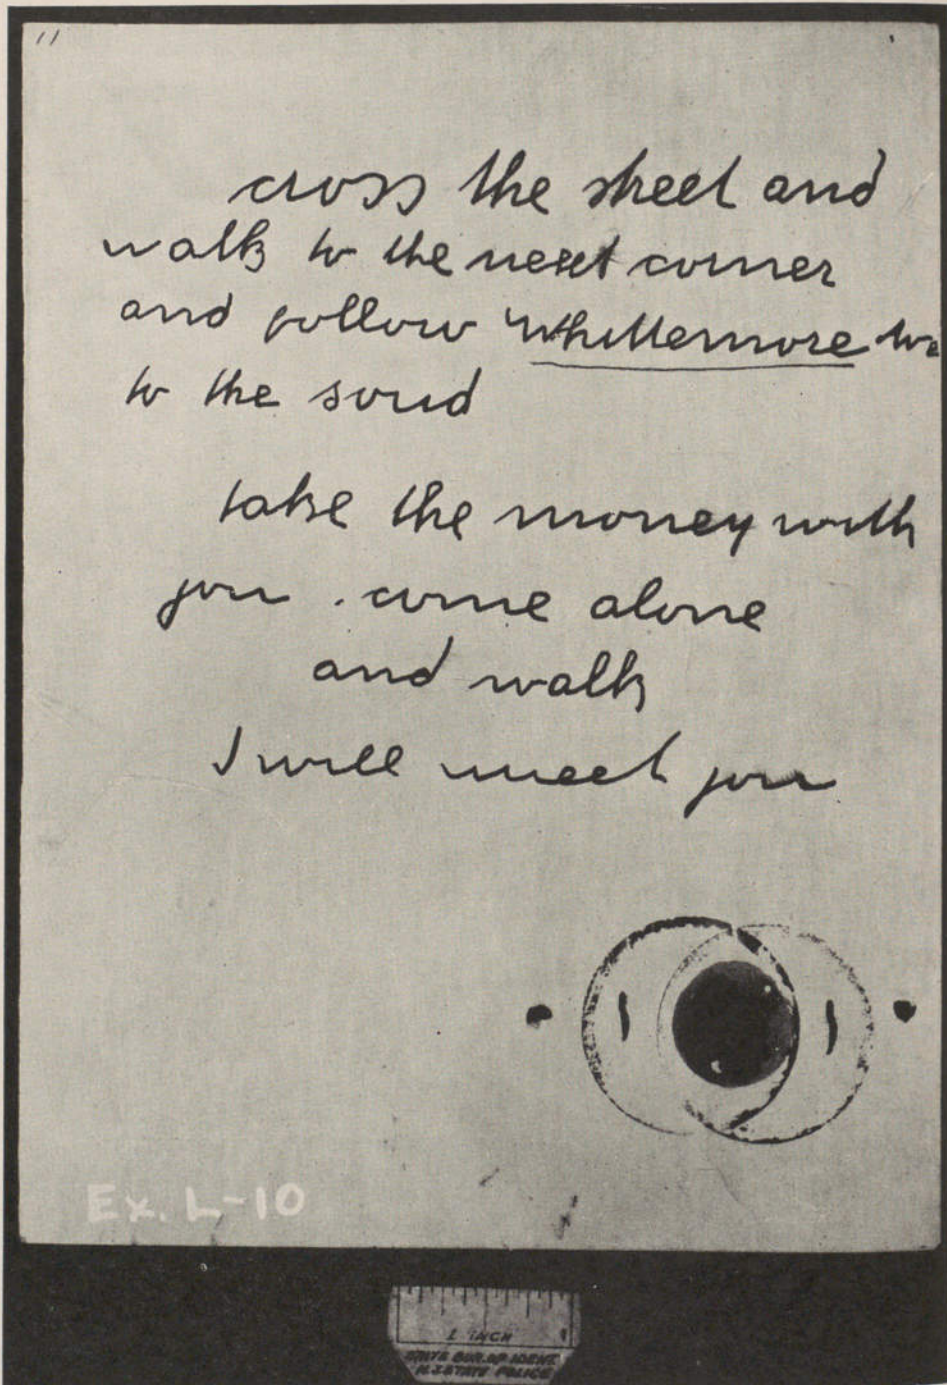 cross the street and
walk to the next corner
and follow Whittemore
to the soud
take the money with
you . come alone
and walk
I will meet you
Ex. L-10
1 INCH
STATE BUR. OF IDENT.
N.J. STATE POLICE